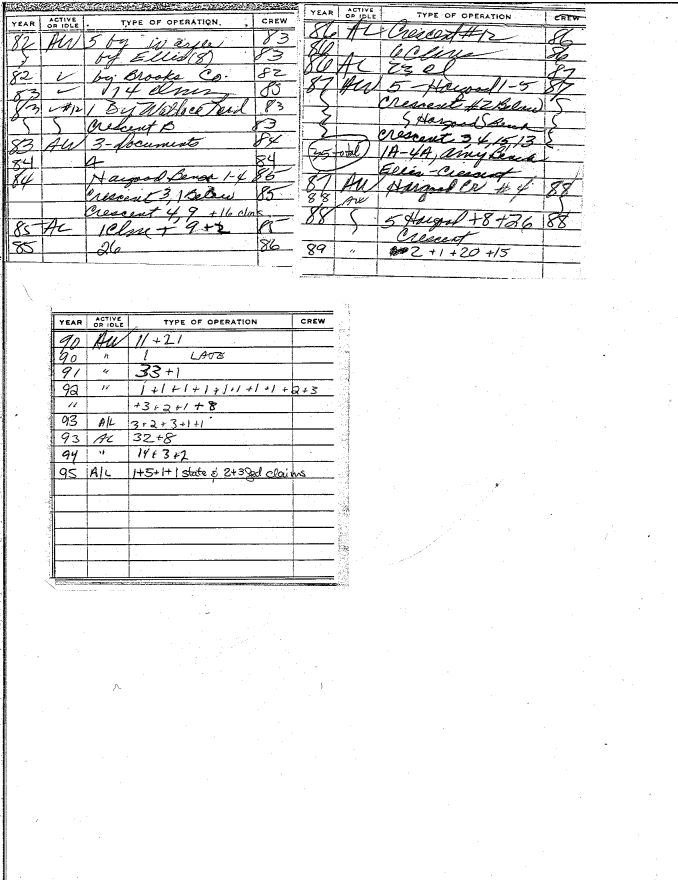 YEAR ACTIVE OR IDLE TYPE OF OPERATION. CREW
82 AW 5 by 83
by Ellis (8) 83
82 ✓ by Brooks Co. 82
83 ✓ 14 clms 83
83 ✓ #12 1 By Wallace 83
Crescent B 83
83 AW 3-Documents 84
84 4 84
84 Hargood Bench 1-4 85
Crescent 3, 1 Below 85
Crescent 4, 9 +16 clms
85 AL 1 Clm + 9+2 85
85 26 86
YEAR ACTIVE OR IDLE TYPE OF OPERATION CREW
86 AL Crescent #12 86
86 6 Clms 86
86 AL 87
87 AW 5 - Hargood 1-5 87
Crescent #2 Below
Hargood Bench
Crescent 3, 4, 15, 13
45 total 1A-4A, Amy Bench
Ellis-Crescent
87 AW Hargood Cr #4 88
88 AW
88 5 Hargood +8 +26 88
Crescent
89 " 2 +1 +20 +15
YEAR ACTIVE OR IDLE TYPE OF OPERATION CREW
90 AW 11 +21
90 " 1 LATE
91 " 33 +1
92 " 1 +1 +1 +1 +1 +1 +1 +1 +2 +3
" +3 +2 +1 +8
93 A/L 3+2+3+1+1
93 AL 32+8
94 " 14 +3 +2
95 A/L 1+5+1+1 state & 2+3 fed claims